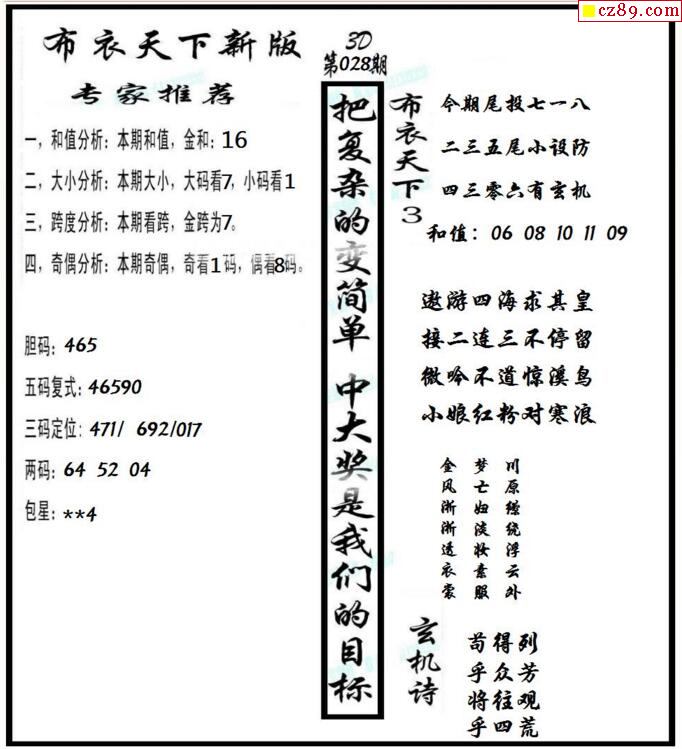 cz89.com
布衣天下新版
专家推荐
一，和值分析：本期和值，金和：16
二，大小分析：本期大小，大码看7，小码看1
三，跨度分析：本期看跨，金跨为7。
四，奇偶分析：本期奇偶，奇看1码，偶看8码。
胆码：465
五码复式：46590
三码定位：471/ 692/017
两码：64 52 04
包星：**4
3D
第028期
把复杂的变简单 中大奖是我们的目标
布衣天下3
今期尾投七一八
二三五尾小设防
四三零六有玄机
和值：06 08 10 11 09
遨游四海求其皇
接二连三不停留
微吟不道惊溪鸟
小娘红粉对寒浪
金 梦 川
风 亡 原
淅 妞 缠
淅 淡 绕
透 妆 浮
衣 素 云
裳 服 外
玄机诗
苟得列
乎众芳
将往观
乎四荒